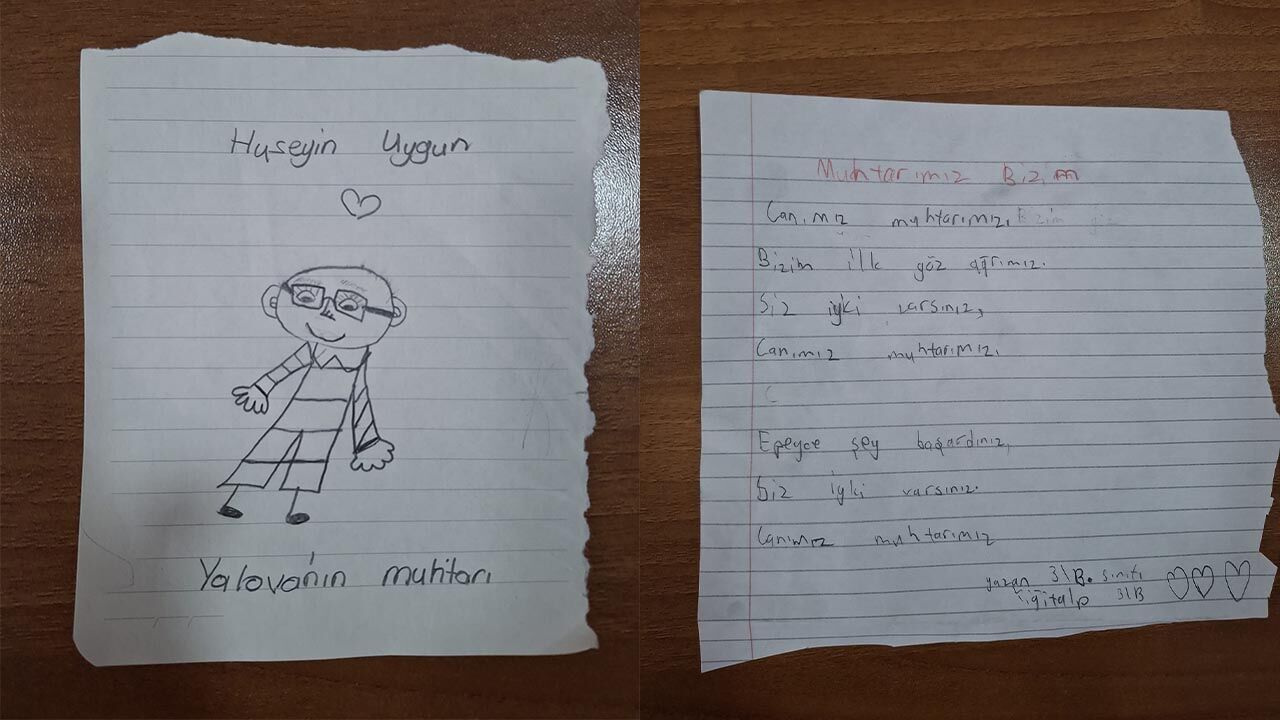 Huseyin Uygun
Yalova'nın muhtarı
Muhtarımız Bizim
Canımız muhtarımız, Bizim
Bizim ilk göz ağrımız.
Siz iyki varsınız,
Canımız muhtarımız.
Epeyce şey başardınız,
Siz iyki varsınız.
Canımız muhtarımız
yazan 3\B. sınıfı
Yiğitalp 3\B